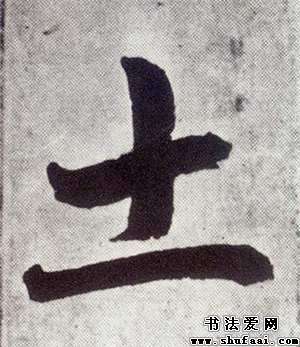 土
书法爱网
www.shufaai.com